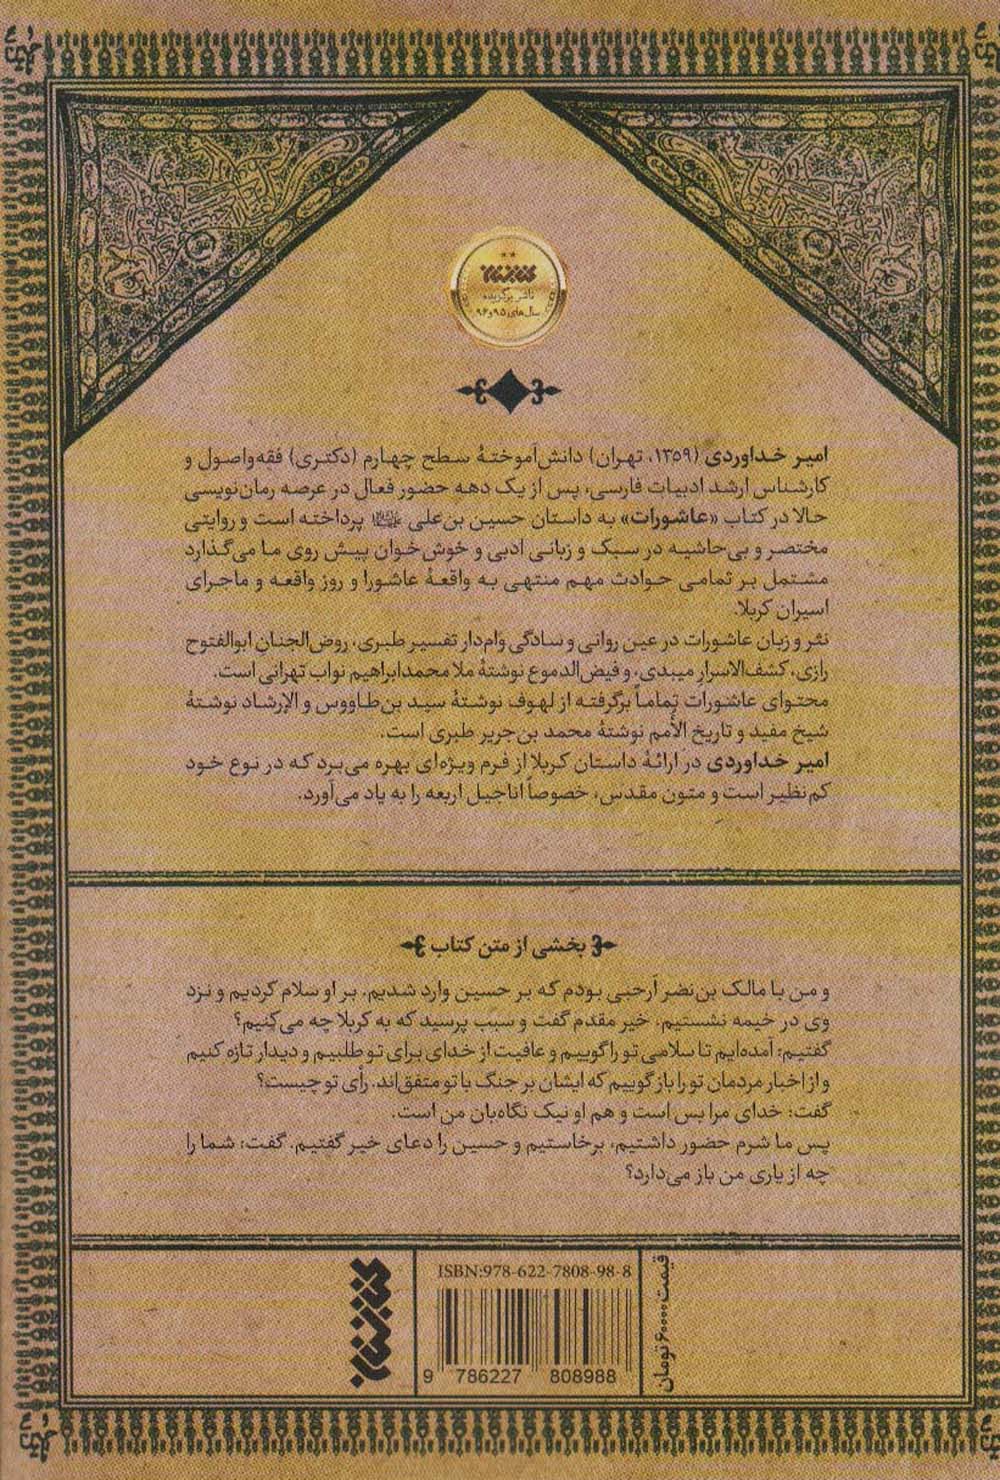 ناشر برگزیده
سال‌های ۹۵ و ۹۶
امیر خداوردی (۱۳۵۹، تهران) دانش‌آموختهٔ سطح چهارم (دکتری) فقه‌واصول و
کارشناس ارشد ادبیات فارسی، پس از یک دهه حضور فعال در عرصه رمان‌نویسی
حالا در کتاب «عاشورات» به داستان حسین بن‌علی پرداخته است و روایتی
مختصر و بی‌حاشیه در سبک و زبانی ادبی و خوش‌خوان پیش روی ما می‌گذارد
مشتمل بر تمامی حوادث مهم منتهی به واقعهٔ عاشورا و روز واقعه و ماجرای
اسیران کربلا.
نثر و زبان عاشورات در عین روانی و سادگی وام‌دار تفسیر طبری، روض‌الجنانِ ابوالفتوح
رازی، کشف‌الاسرارِ میبدی، و فیض‌الدموع نوشتهٔ ملا محمدابراهیم نواب تهرانی است.
محتوای عاشورات تماماً برگرفته از لهوف نوشتهٔ سید بن‌طاووس و الإرشاد نوشتهٔ
شیخ مفید و تاریخ الأمم نوشتهٔ محمد بن‌جریر طبری است.
امیر خداوردی در ارائهٔ داستان کربلا از فرم ویژه‌ای بهره می‌برد که در نوع خود
کم‌نظیر است و متون مقدس، خصوصاً اناجیل اربعه را به یاد می‌آورد.
بخشی از متن کتاب
و من با مالک بن‌نضر أرحبی بودم که بر حسین وارد شدیم. بر او سلام کردیم و نزد
وی در خیمه نشستیم. خیر مقدم گفت و سبب پرسید که به کربلا چه می‌کنیم؟
گفتیم: آمده‌ایم تا سلامی تو را گوییم و عافیت از خدای برای تو طلبیم و دیدار تازه کنیم
و از اخبار مردمان تو را بازگوییم که ایشان بر جنگ با تو متفق‌اند. رأی تو چیست؟
گفت: خدای مرا بس است و هم او نیک نگاه‌بان من است.
پس ما شرم حضور داشتیم، برخاستیم و حسین را دعای خیر گفتیم. گفت: شما را
چه از یاری من باز می‌دارد؟
ISBN:978-622-7808-98-8
9 786227 808988
قیمت ۶۰۰۰۰ تومان